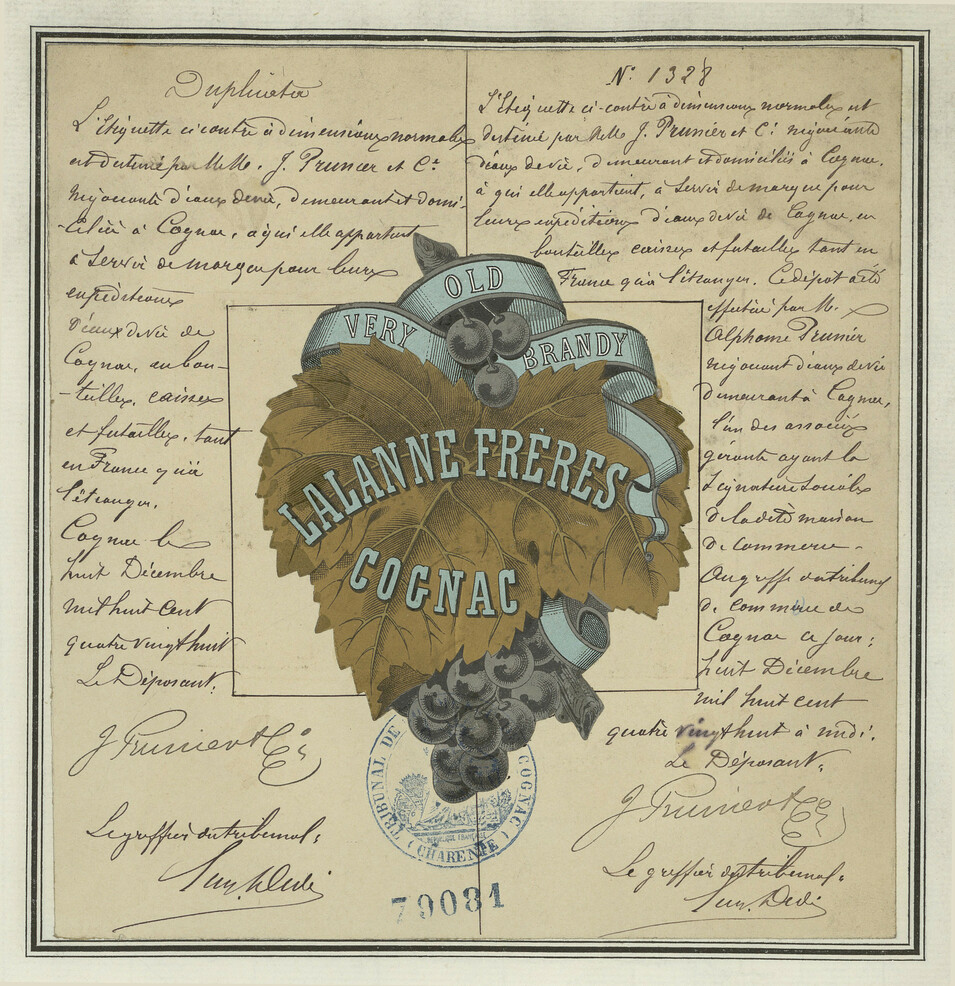 Duplicata
L'Etiquette ci contre à dimensions normales
est destinée par M.M. J. Prunier et Cie
négociants d'eaux de vie, demeurant et domi-
-ciliés à Cognac, à qui elle appartient
à servir de marque pour leurs
expéditions
d'eaux de vie de
Cognac, en bou-
-teilles, caisses
et futailles, tant
en France qu'à
l'étranger.
Cognac le
huit Décembre
mil huit cent
quatre vingt huit
Le Déposant.
J Prunier & Cie
Le greffier du tribunal.
N° 1328
L'Etiquette ci-contre à dimensions normales est
destinée par M.M. J. Prunier et Cie négociants
d'eaux de vie, demeurant et domiciliés à Cognac,
à qui elle appartient, à servir de marque pour
leurs expéditions d'eaux de vie de Cognac, en
bouteilles caisses et futailles tant en
France qu'à l'étranger. Ce dépôt a été
effectué par M.
Alphonse Prunier
négociant d'eaux de vie
demeurant à Cognac,
l'un des associés
gérants ayant la
signature sociale
de la dite maison
de commerce.
Au greffe du tribunal
de commerce de
Cognac ce jour:
huit Décembre
mil huit cent
quatre vingt huit à midi.
Le Déposant,
J Prunier & Cie
Le greffier du tribunal.
VERY OLD BRANDY
LALANNE FRÈRES
COGNAC
TRIBUNAL DE COGNAC
(CHARENTE)
RÉPUBLIQUE FRANÇAISE
79081